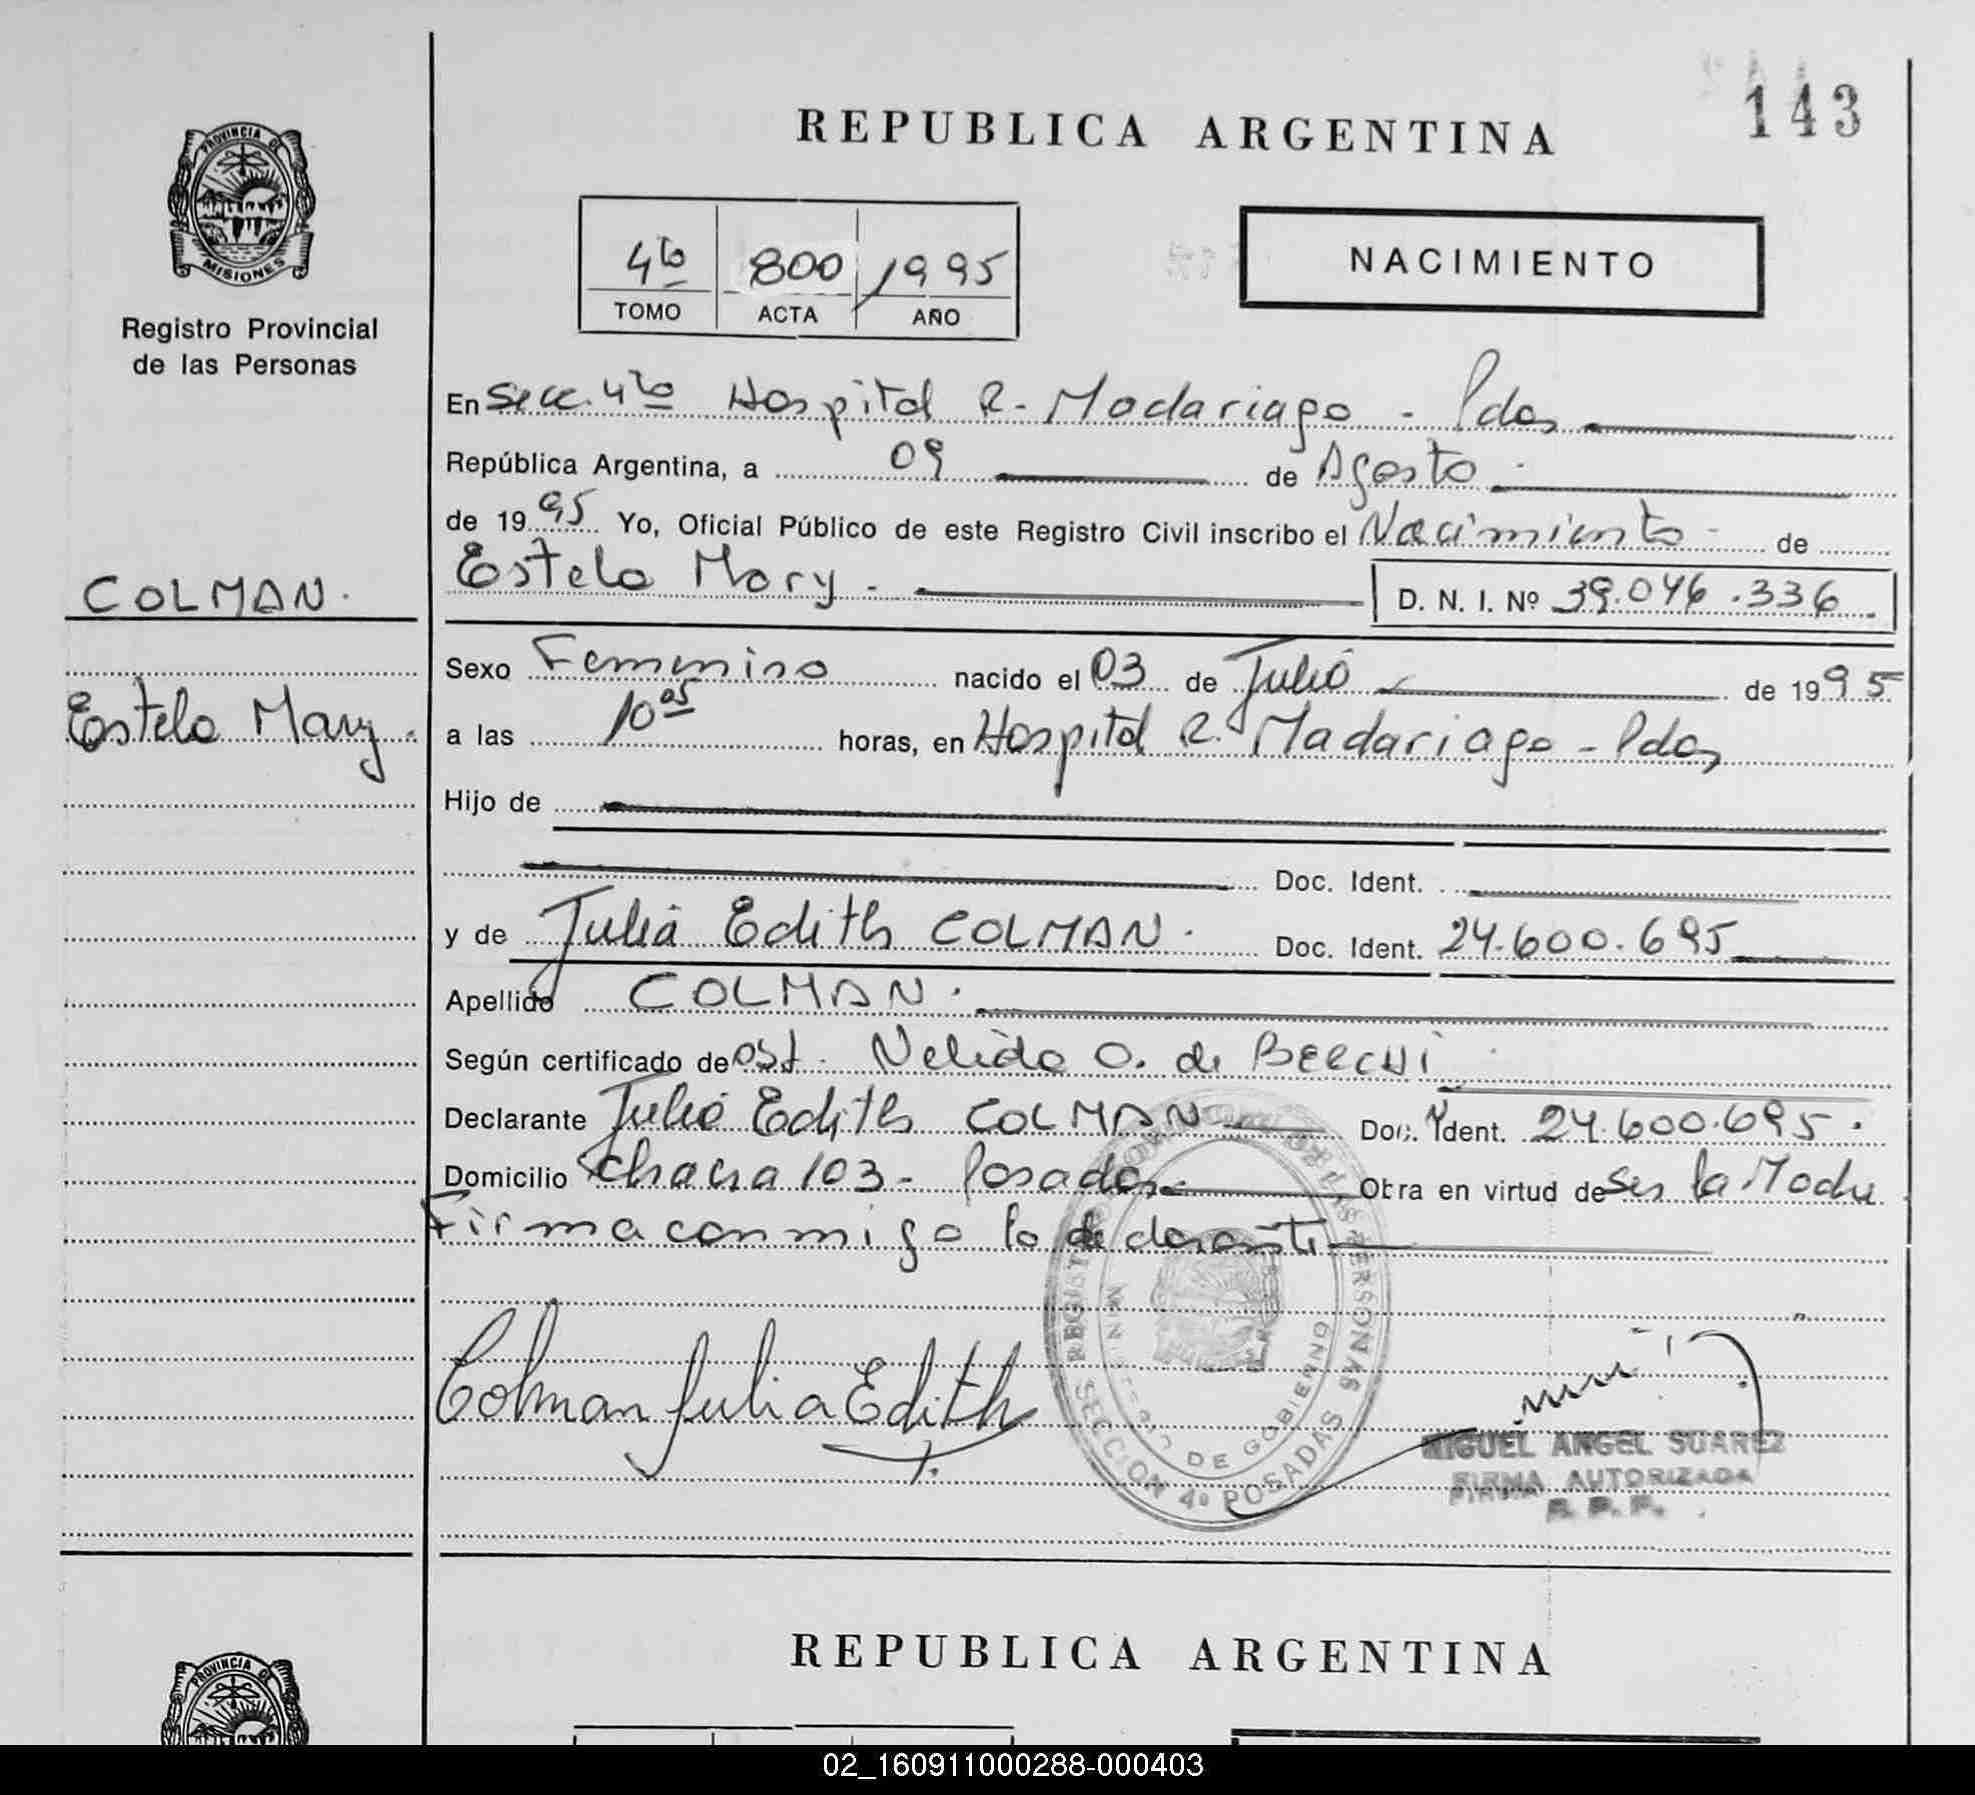 143
REPUBLICA ARGENTINA
PROVINCIA DE
MISIONES
Registro Provincial
de las Personas
4to 800 1995
TOMO ACTA AÑO
NACIMIENTO
En Secc. 4to Hospital R. Madariaga - Pdas
República Argentina, a 09 de Agosto
de 1995 Yo, Oficial Público de este Registro Civil inscribo el Nacimiento de
COLMAN.
Estela Mary. D. N. I. Nº 39.046.336.
Sexo Femenino nacido el 03 de Julio de 1995
Estela Mary.
a las 10 05 horas, en Hospital R. Madariaga - Pdas
Hijo de
Doc. Ident.
y de Julia Edith COLMAN. Doc. Ident. 24.600.695
Apellido COLMAN.
Según certificado de obst. Nelida O. de
Declarante Julia Edith COLMAN Doc. Ident. 24.600.695.
Domicilio Chacra 103 - Posadas Obra en virtud de Ser la Madre
Firma conmigo la declarante
Colman Julia Edith
REGISTRO PERSONAS
SECCION 4º POSADAS
MINISTERIO DE GOBIERNO
MIGUEL ANGEL SUAREZ
FIRMA AUTORIZADA
R. P. P.
REPUBLICA ARGENTINA
PROVINCIA DE
02_160911000288-000403